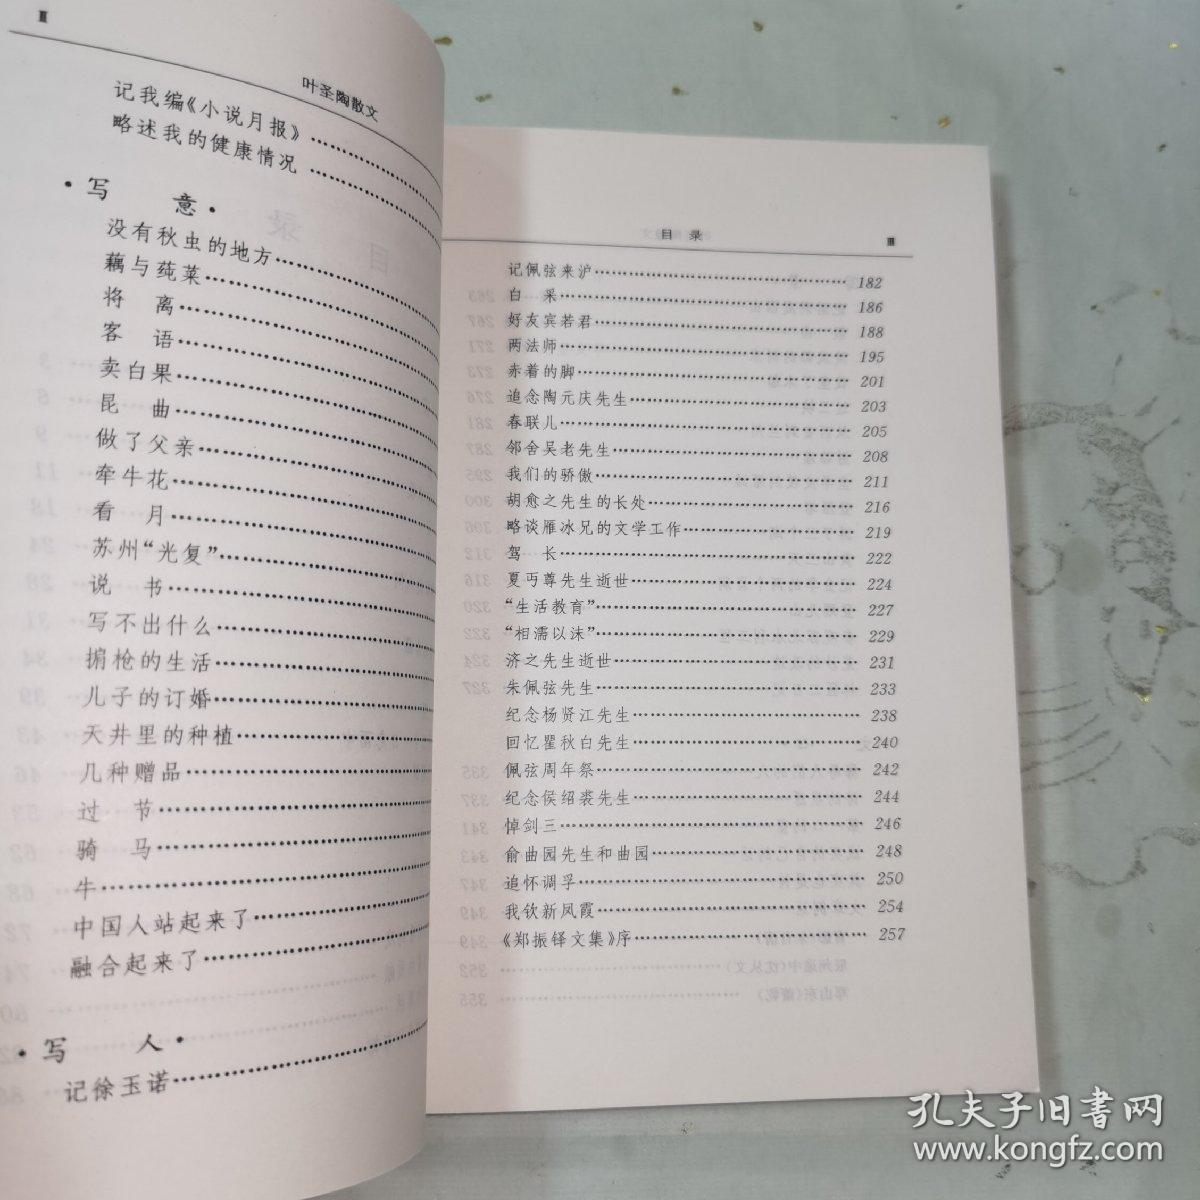 Ⅱ
叶圣陶散文
记我编《小说月报》
略述我的健康情况
·写 意·
没有秋虫的地方
藕与莼菜
将 离
客 语
卖白果
昆 曲
做了父亲
牵牛花
看 月
苏州“光复”
说 书
写不出什么
掮枪的生活
儿子的订婚
天井里的种植
几种赠品
过 节
骑 马
牛
中国人站起来了
融合起来了
·写 人·
记徐玉诺
目 录
Ⅲ
记佩弦来沪 182
白 采 186
好友宾若君 188
两法师 195
赤着的脚 201
追念陶元庆先生 203
春联儿 205
邻舍吴老先生 208
我们的骄傲 211
胡愈之先生的长处 216
略谈雁冰兄的文学工作 219
驾 长 222
夏丏尊先生逝世 224
“生活教育” 227
“相濡以沫” 229
济之先生逝世 231
朱佩弦先生 233
纪念杨贤江先生 238
回忆瞿秋白先生 240
佩弦周年祭 242
纪念侯绍裘先生 244
悼剑三 246
俞曲园先生和曲园 248
追怀调孚 250
我钦新凤霞 254
《郑振铎文集》序 257
孔夫子旧书网
www.kongfz.com